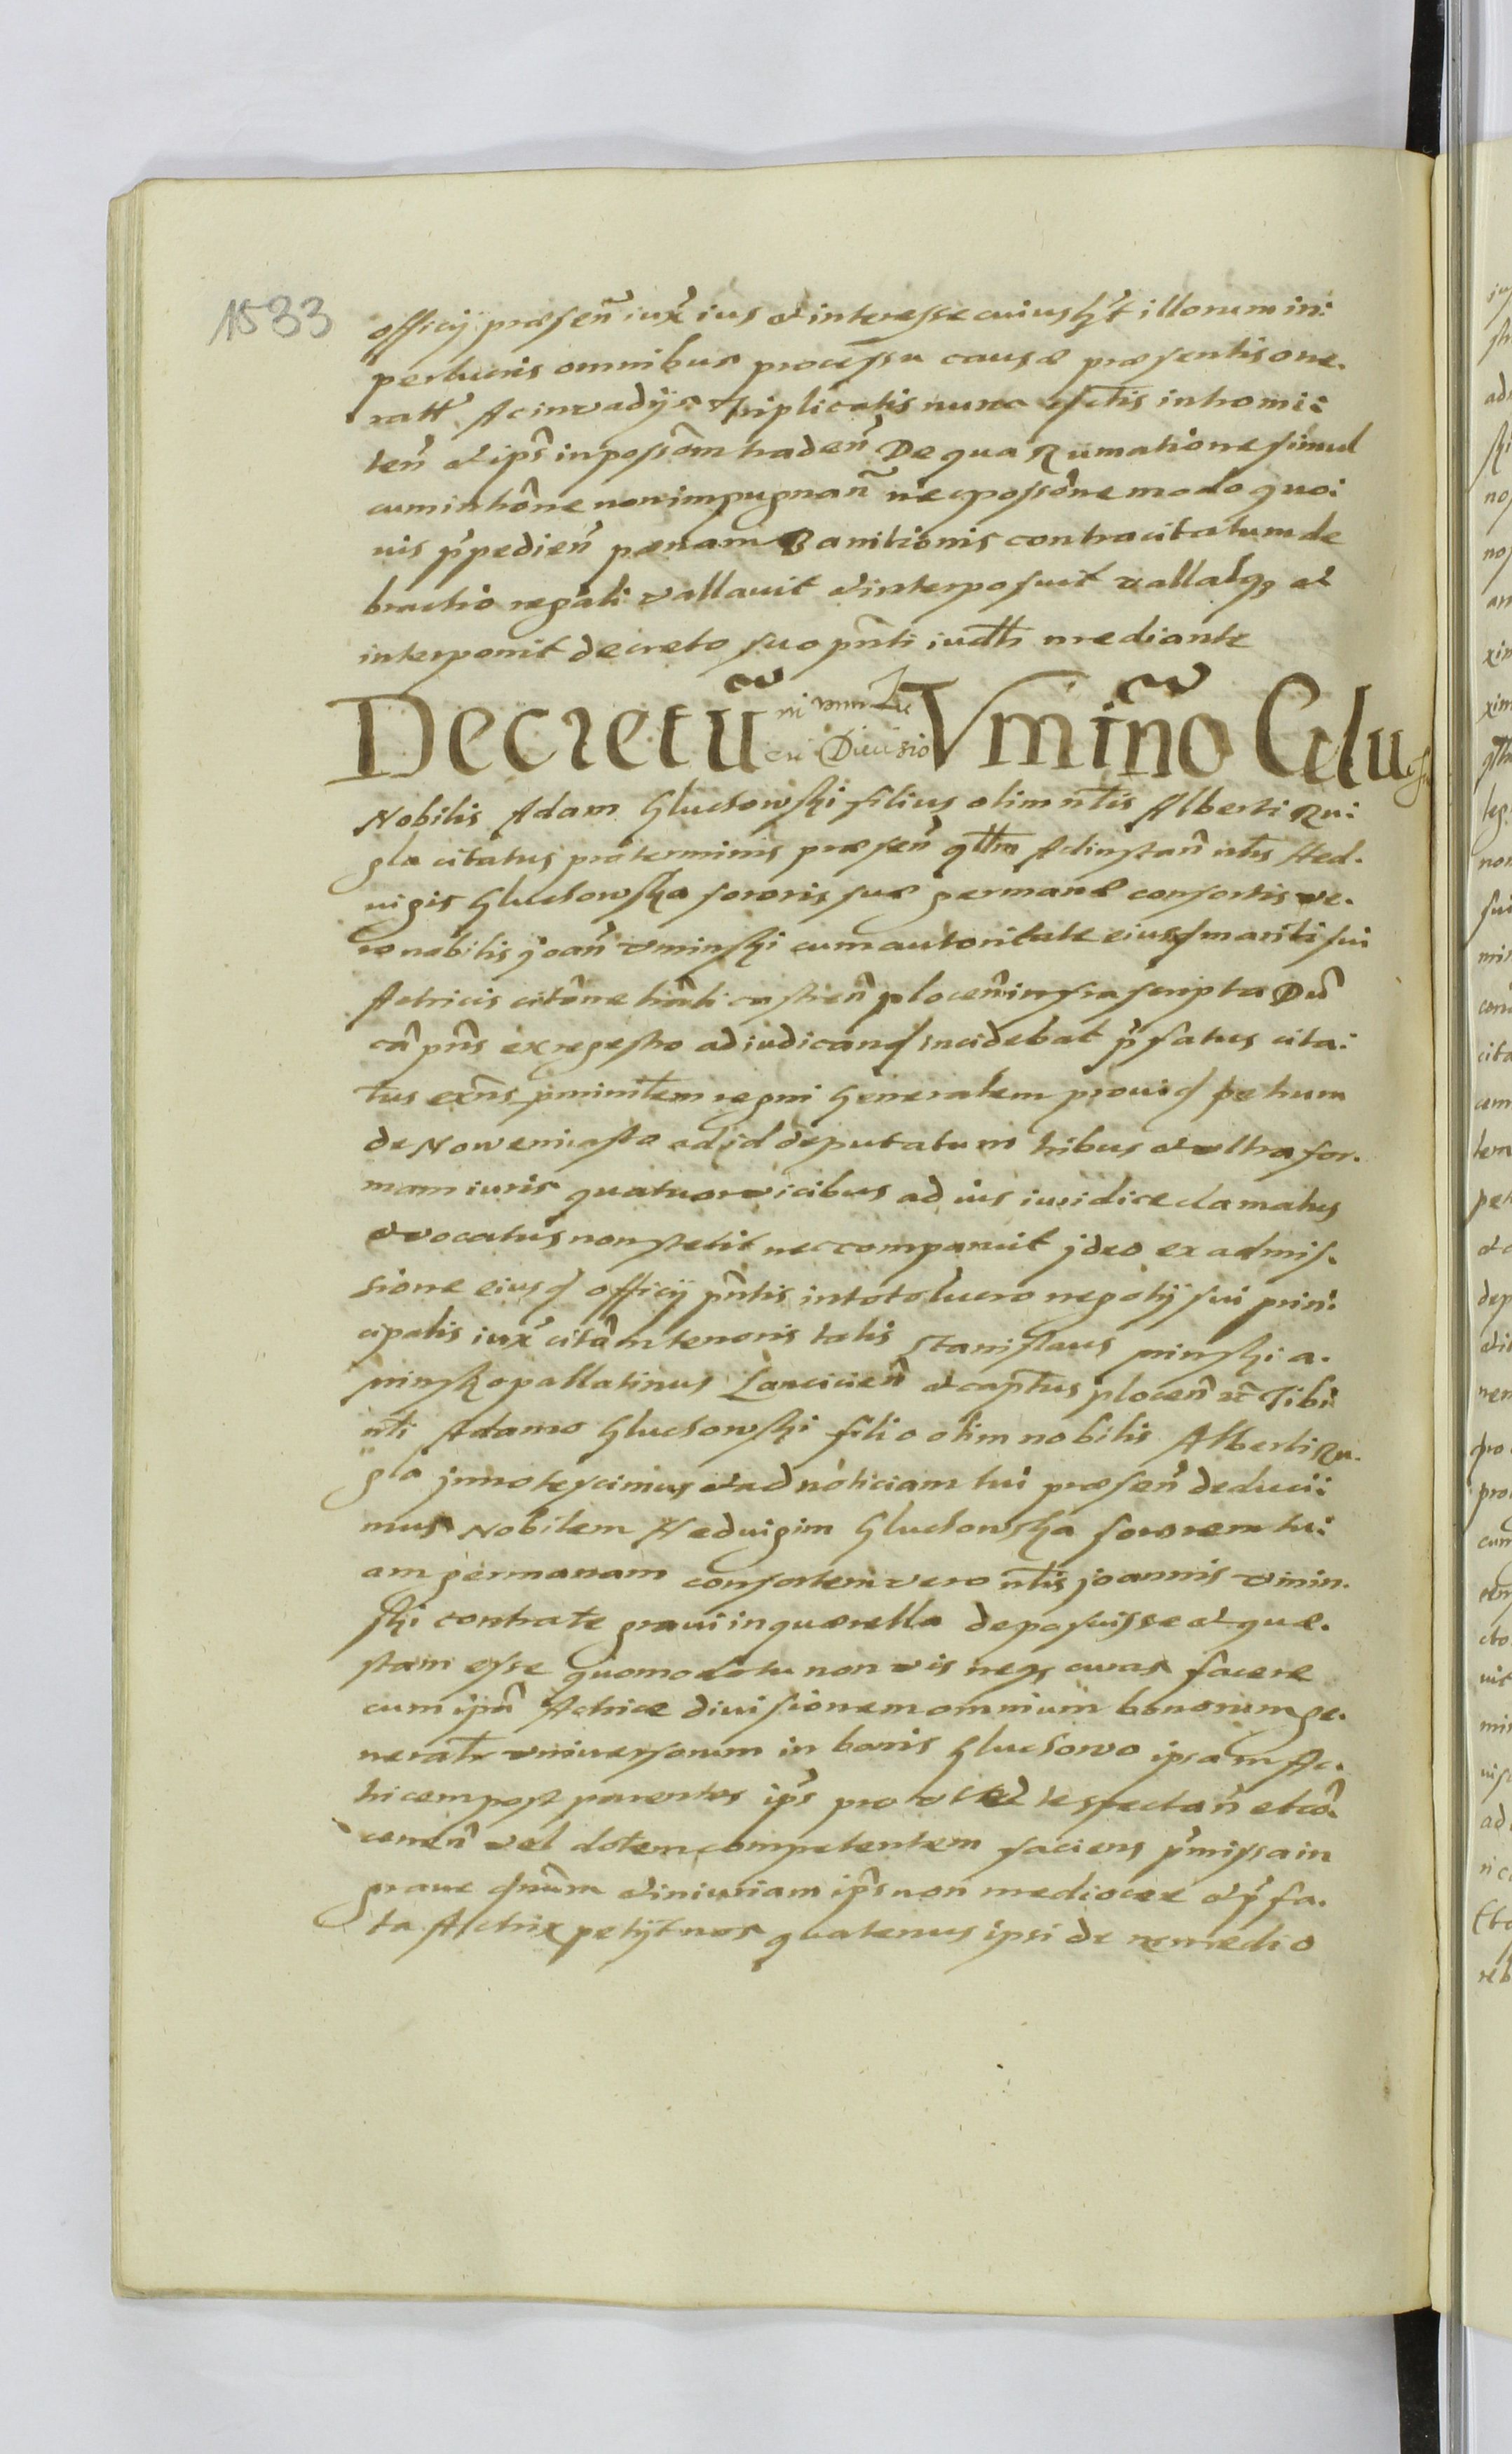 1533
officij præsen̄ iux̄ ius et interesse cuiuslꝫt illorum in:
perlucris omnibus processu causæ præsentis one.
ratt Ac in vadijs Triplicatis nunc
ten̄ et ip̄s in possōm traden̄ De qua Rumatione simul
cum intron̄e non impugnan̄ nec possōne modo quoi
uis p̄pedien̄ pœnam Banitionis contra citatum de
brachio regali vallauit et interposuit vallatqꝫ et
interponit decreto suo pn̄ti iudtt mediante
Decretū Vmin̄o Glu
Diuisio
Nobilis Adam Gluchowski filius olim nt̄lis Alberti Rui
gla citatus pro terminis præsen̄ qttis Ad instan̄ nt̄lis Hed.
uigis Gluchowska sororis suæ germanæ consortis ve.
ro nobilis joan̄ vminski cum autoritate eiusd mariti sui
Actricis citōne trāli castren̄ plocen̄ infrascripta Dū
cā pn̄s ex regestro ad iudicand incidebat p̄fatus cita:
tus exn̄s p ministem regni Generalem prouid petrum
de Nowemiasto ad id deputatum tribus et vltra for.
mam iuris quatuor vicibus ad ius iuridice clamatus
et vocatus non stetit nec comparuit jdeo ex admis.
sione eiusd officij pn̄tis in toto lucro negotij sui prin:
cipalis iux̄ citām tenoris talis Stanislaus minski a.
minsko pallatinus Lancicien̄ et capt̄us plocen̄ rc Tibi
nt̄li Adamo Gluchowski filio olim nobilis Alberti Ru.
gla jnnotescimus et ad noticiam tui præsen̄ deduci:
mus Nobilem Hedvigim Gluchowska sororem tu:
am germanam consortem vero nt̄lis joannis vmin.
ski contra te graui in quærella deposuisse et quæ.
stam esse quomodo tu non vis neqꝫ curas facere
cum ip̄a Actrice diuisionem omnium bonorum ge.
neratr vniuersorum in bonis Gluchowo ipsam Ac.
tricem post parentes ip̄s pro spectan̄ et cō
cernen̄ vel dotem competentem faciens p̄missa in
graue dn̄um et iniuriam ip̄s non mediocre et p̄fa.
ta Actrix petijt nos quatenus ipsi de remedio